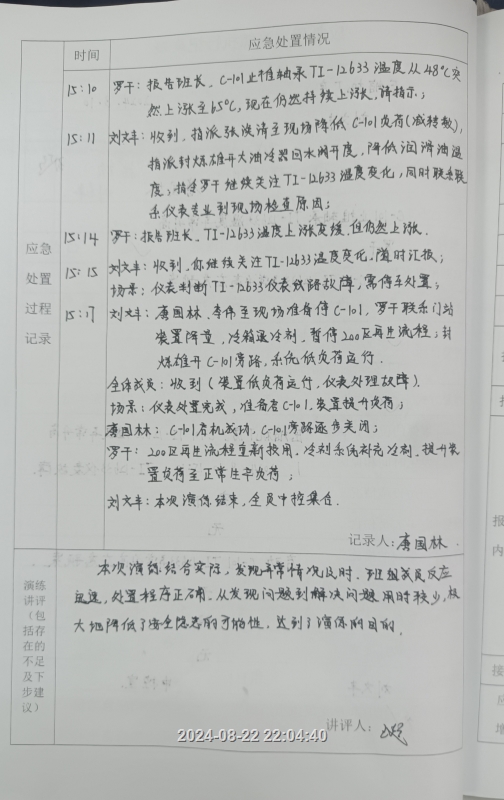 时间
应急处置情况
15:10
罗干：报告班长、C-101止推轴承TI-12633温度从48℃突
然上涨至65℃，现在仍然持续上涨，请指示；
15:11
刘文丰：收到，指派张
清至现场降低C-101负荷(减转数)，
指派封炼雄开大油冷器回水阀开度，降低润滑油温
度；指令罗干继续关注TI-12633温度变化，同时联系联
系仪表专业到现场检查原因；
15:14
罗干：报告班长、TI-12633温度上涨变缓，但仍然上涨．
15:15
刘文丰：收到，你继续关注TI-12633温度变化，随时汇报；
场景：仪表判断TI-12633仪表线路故障，需停车处置；
15:17
刘文丰：唐国林、李伟至现场准备停C-101，罗干联系门站
装置降量，冷箱退冷剂，暂停200区再生流程；封
炼雄开C-101旁路，系统低负荷运行．
全体成员：收到(装置低负荷运行，仪表处理故障)．
场景：仪表处置完成，准备启C-101，装置提升负荷；
唐国林：C-101启机成功，C-101旁路逐步关闭；
罗干：200区再生流程重新投用，冷剂系统补充冷剂，提升装
置负荷至正常生产负荷；
刘文丰：本次演练结束，全员中控集合．
应急
处置
过程
记录
记录人：唐国林
演练
讲评
（包
括存
在的
不足
及下
步建
议）
本次演练结合实际，发现异常情况及时，班组成员反应
迅速，处置程序正确，从发现问题到解决问题用时较少，极
大地降低了安全隐患的可能性，达到了演练的目的．
讲评人：
2024-08-22 22:04:40
报
内
接
应
地